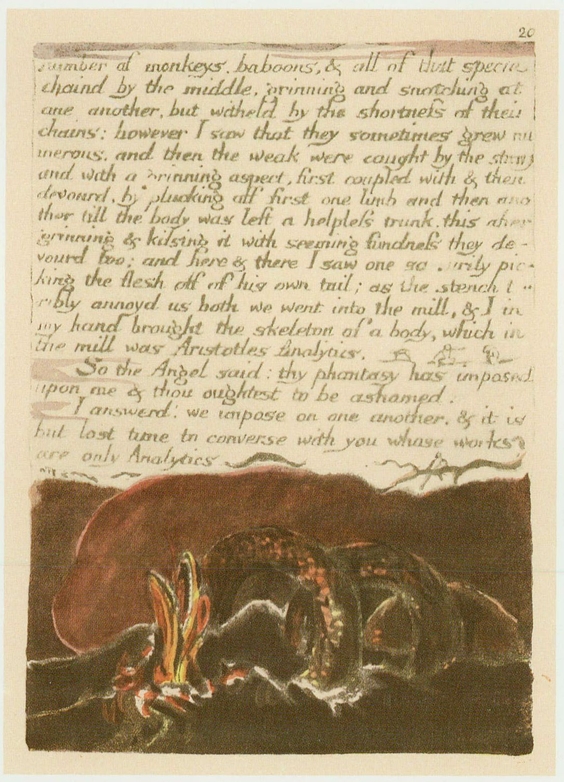 20
number of monkeys, baboons, & all of that species
chaind by the middle, grinning and snatching at
one another, but witheld by the shortness of their
chains: however I saw that they sometimes grew nu
merous, and then the weak were caught by the strong
and with a grinning aspect, first coupled with & then
devourd, by plucking off first one limb and then ano
ther till the body was left a helpless trunk. this after
grinning & kissing it with seeming fondness they de-
vourd too; and here & there I saw one savourily pic-
king the flesh off of his own tail; as the stench
ribly annoyd us both we went into the mill, & I in
my hand brought the skeleton of a body, which in
the mill was Aristotles Analytics.
So the Angel said: thy phantasy has imposed
upon me & thou oughtest to be ashamed.
I answerd: we impose on one another, & it is
but lost time to converse with you whose works
are only Analytics